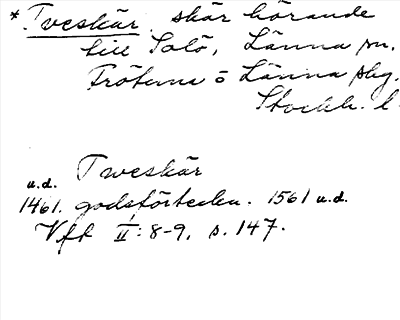 *Tveskär, skär hörande
till Solö, Länna sn.
Frötuna o Länna skg.
Stockh. l.
Tweskär
u.d.
1461. godsförteckn. 1561 u.d.
Vfk II: 8-9, s. 147.